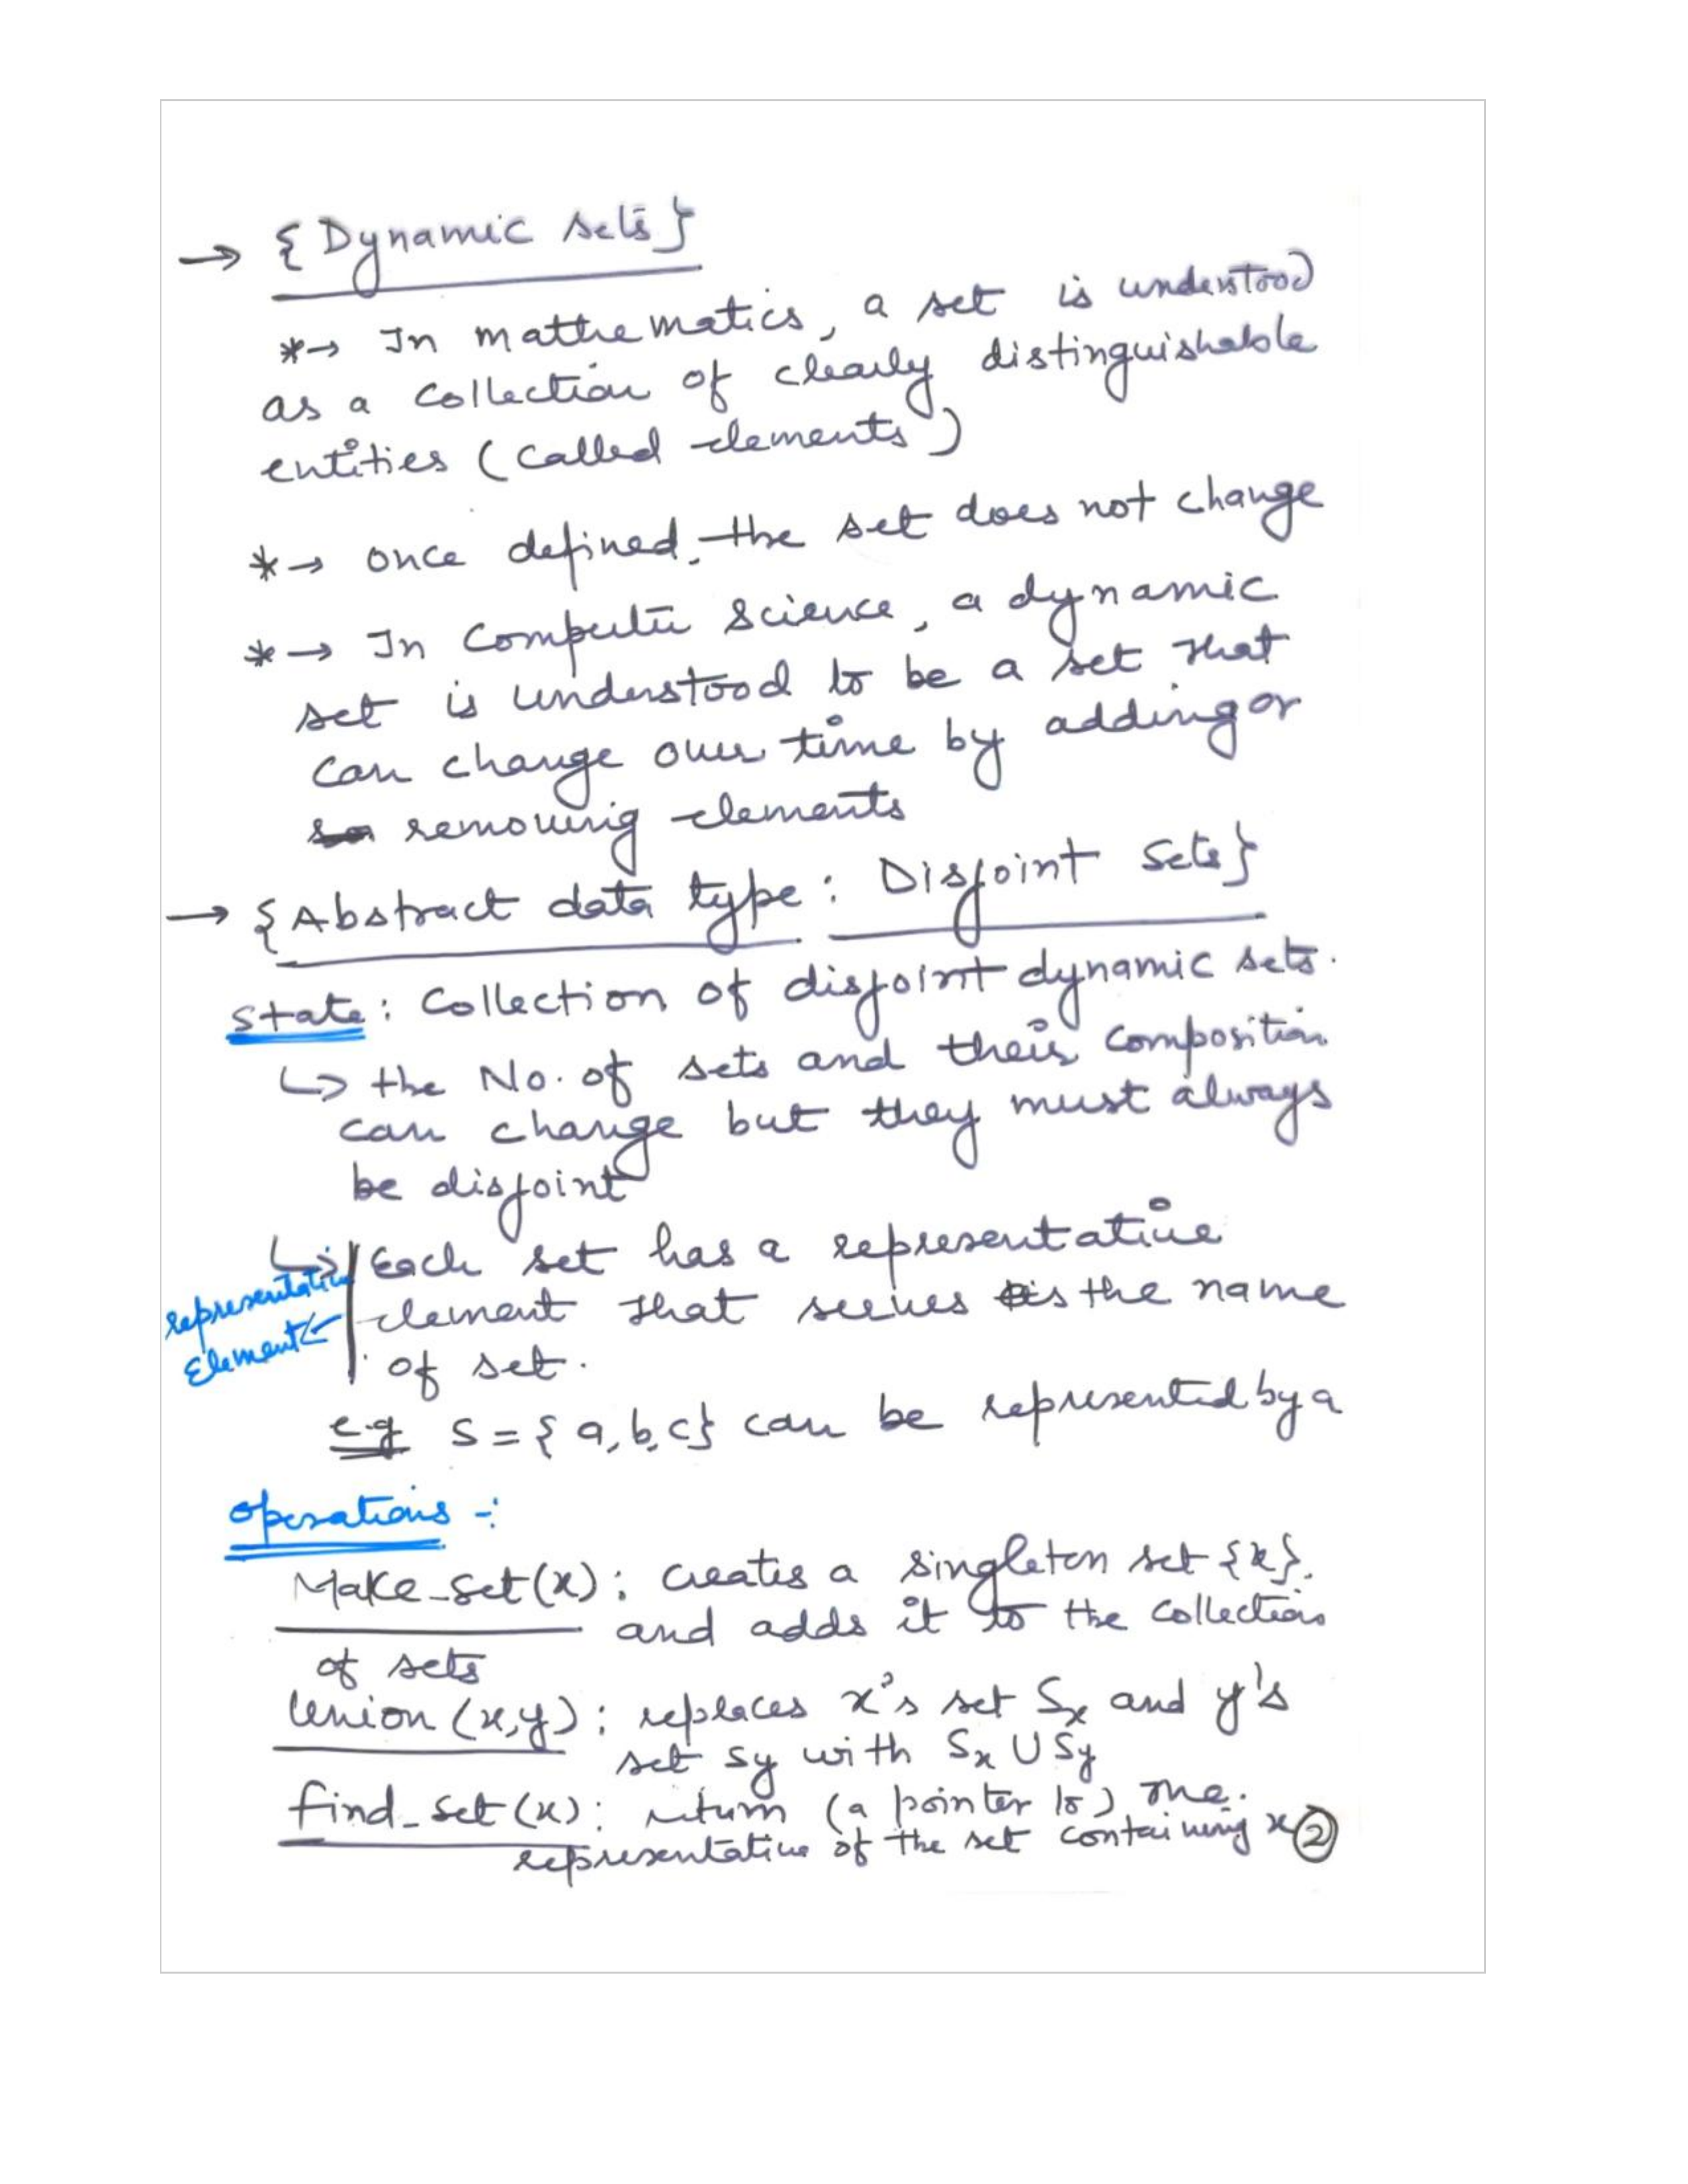 → {Dynamic sets}
*→ In mathematics, a set is understood
as a collection of clearly distinguishable
entities (called elements)
*→ once defined, the set does not change
*→ In Computer Science, a dynamic
set is understood to be a set that
can change over time by adding or
removing elements
→ {Abstract data type: Disjoint Sets}
State: Collection of disjoint dynamic sets.
↳ the No. of sets and their composition
can change but they must always
be disjoint
↳ Each set has a representative
element that serves as the name
of set.
representative
Element ↙
e.g S = {a, b, c} can be represented by a
operations :-
Make_set(x): creates a singleton set {x}.
and adds it to the collection
of sets
Union (x,y): replaces x's set Sx and y's
set Sy with Sx ∪ Sy
find_set(x): return (a pointer to) the.
representative of the set containing x ②